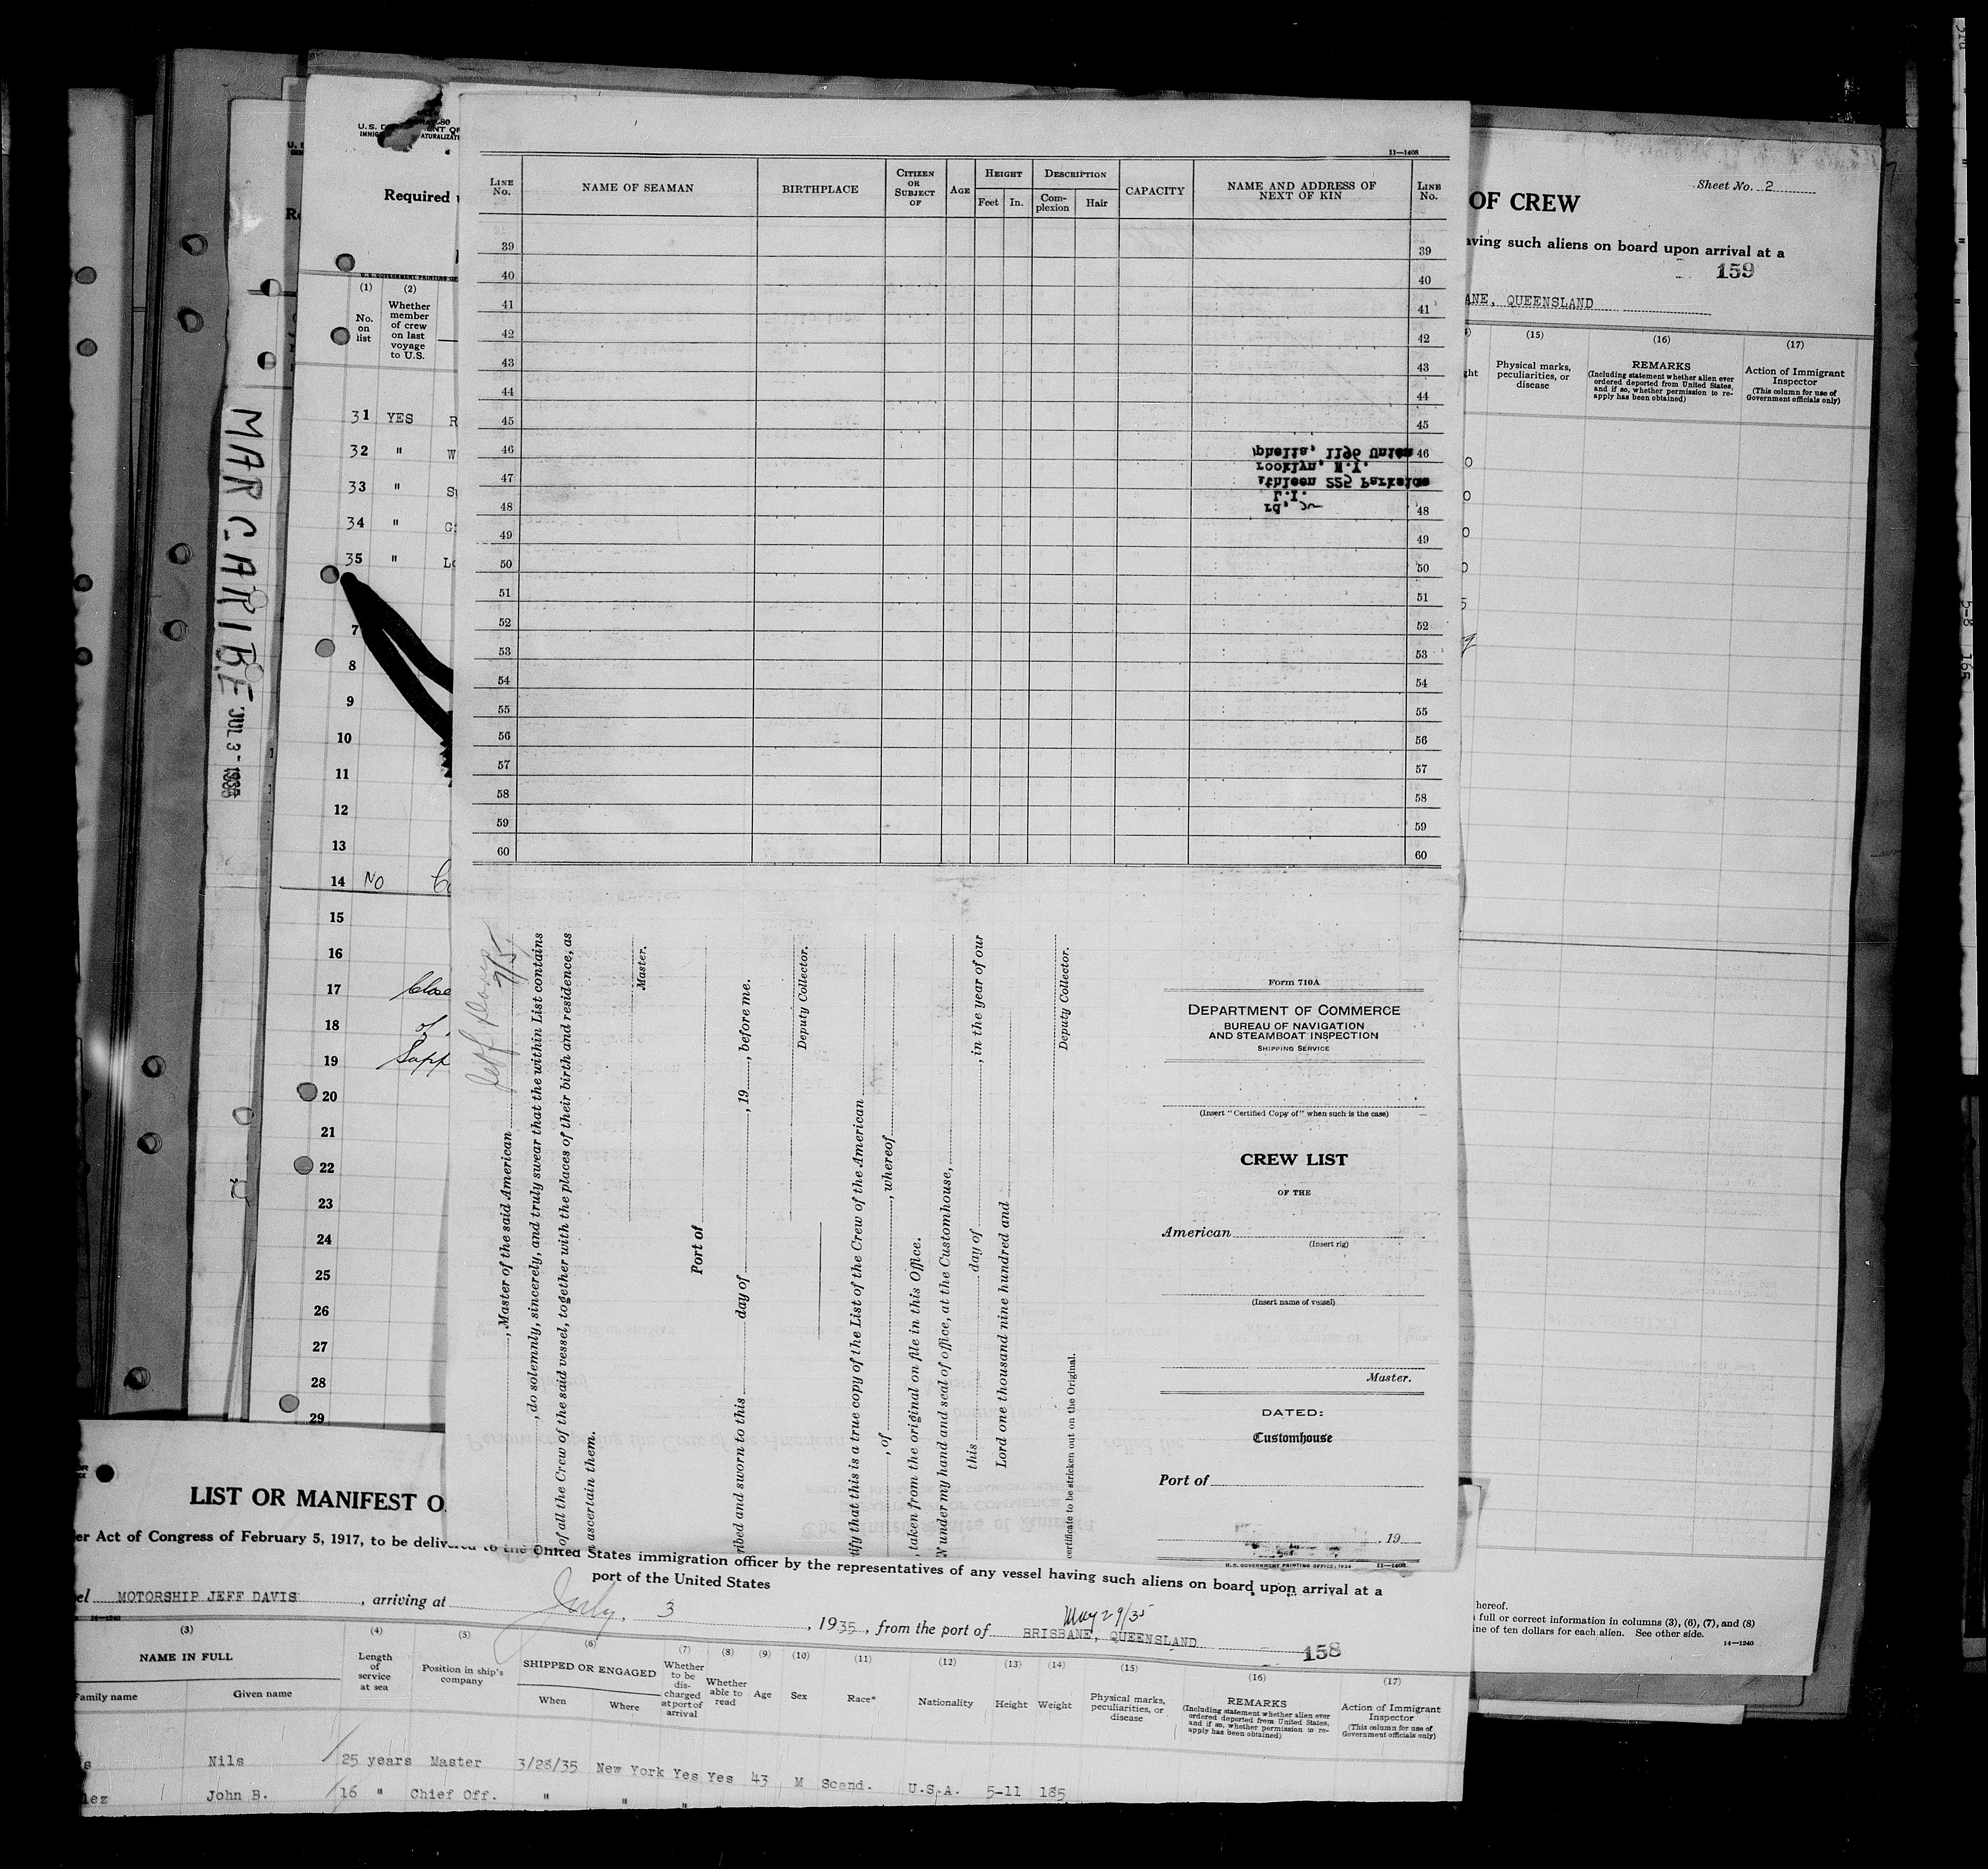 11—1408
LINE No.
NAME OF SEAMAN
BIRTHPLACE
CITIZEN OR SUBJECT OF
AGE
HEIGHT
Feet
In.
DESCRIPTION
Complexion
Hair
CAPACITY
NAME AND ADDRESS OF NEXT OF KIN
LINE No.
39 39
40 40
41 41
42 42
43 43
44 44
45 45
46 phelia, 1196 Union 46
rooklyn, N.Y.
47 athleen 225 Parkside
L.I.
48 rd, 48
49 49
50 50
51 51
52 52
53 53
54 54
55 55
56 56
57 57
58 58
59 59
60 60
Jeff Davis
7/5
, Master of the said American
, do solemnly, sincerely, and truly swear that the within List contains
of all the Crew of the said vessel, together with the places of their birth and residence, as
ascertain them.
Master.
Port of
ribed and sworn to this day of , 19 , before me.
Deputy Collector.
tify that this is a true copy of the List of the Crew of the American
, of , whereof
, taken from the original on file in this Office.
N under my hand and seal of office, at the Customhouse,
this day of , in the year of our
Lord one thousand nine hundred and
Deputy Collector.
certificate to be stricken out on the Original.
Form 710A
DEPARTMENT OF COMMERCE
BUREAU OF NAVIGATION
AND STEAMBOAT INSPECTION
SHIPPING SERVICE
(Insert "Certified Copy of" when such is the case)
CREW LIST
OF THE
American
(Insert rig)
(Insert name of vessel)
Master.
DATED:
Customhouse
Port of
, 19
U.S. GOVERNMENT PRINTING OFFICE: 1934 11—1408
MAR CARIBE JUL 3 - 1935
U. S. D
IMMIG
ENT OF
ATURALIZAT
Required
U.S. GOVERNMENT PRINTING OF
(1) (2)
No. on list
Whether member of crew on last voyage to U.S.
31 YES R
32 " W
33 " S
34 " G
35 " L
7
8
9
10
11
12
13
14 NO
15
16
17 Close
18 of
19 Supp
20
21
22
23
24
25
26
27
28
29
Sheet No. 2
OF CREW
aving such aliens on board upon arrival at a
159
ANE, QUEENSLAND
(15) (16) (17)
ght
Physical marks, peculiarities, or disease
REMARKS
(Including statement whether alien ever ordered deported from United States, and if so, whether permission to reapply has been obtained)
Action of Immigrant Inspector
(This column for use of Government officials only)
hereof.
full or correct information in columns (3), (6), (7), and (8)
ine of ten dollars for each alien. See other side.
14—1240
5-8 165
LIST OR MANIFEST O
er Act of Congress of February 5, 1917, to be delivered to the United States immigration officer by the representatives of any vessel having such aliens on board upon arrival at a
port of the United States
el MOTORSHIP JEFF DAVIS , arriving at July, 3 , 1935 , from the port of BRISBANE, QUEENSLAND
May 29/35
158
14—1240
(3) (4) (5) (6) (7) (8) (9) (10) (11) (12) (13) (14) (15) (16) (17)
NAME IN FULL
Family name
Given name
Length of service at sea
Position in ship's company
SHIPPED OR ENGAGED
When
Where
Whether to be discharged at port of arrival
Whether able to read
Age
Sex
Race*
Nationality
Height
Weight
Physical marks, peculiarities, or disease
REMARKS
(Including statement whether alien ever ordered deported from United States, and if so, whether permission to reapply has been obtained)
Action of Immigrant Inspector
(This column for use of Government officials only)
s Nils 25 years Master 3/28/35 New York Yes Yes 43 M Scand. U.S.A. 5-11 185
lez John B. 16 " Chief Off. " " "